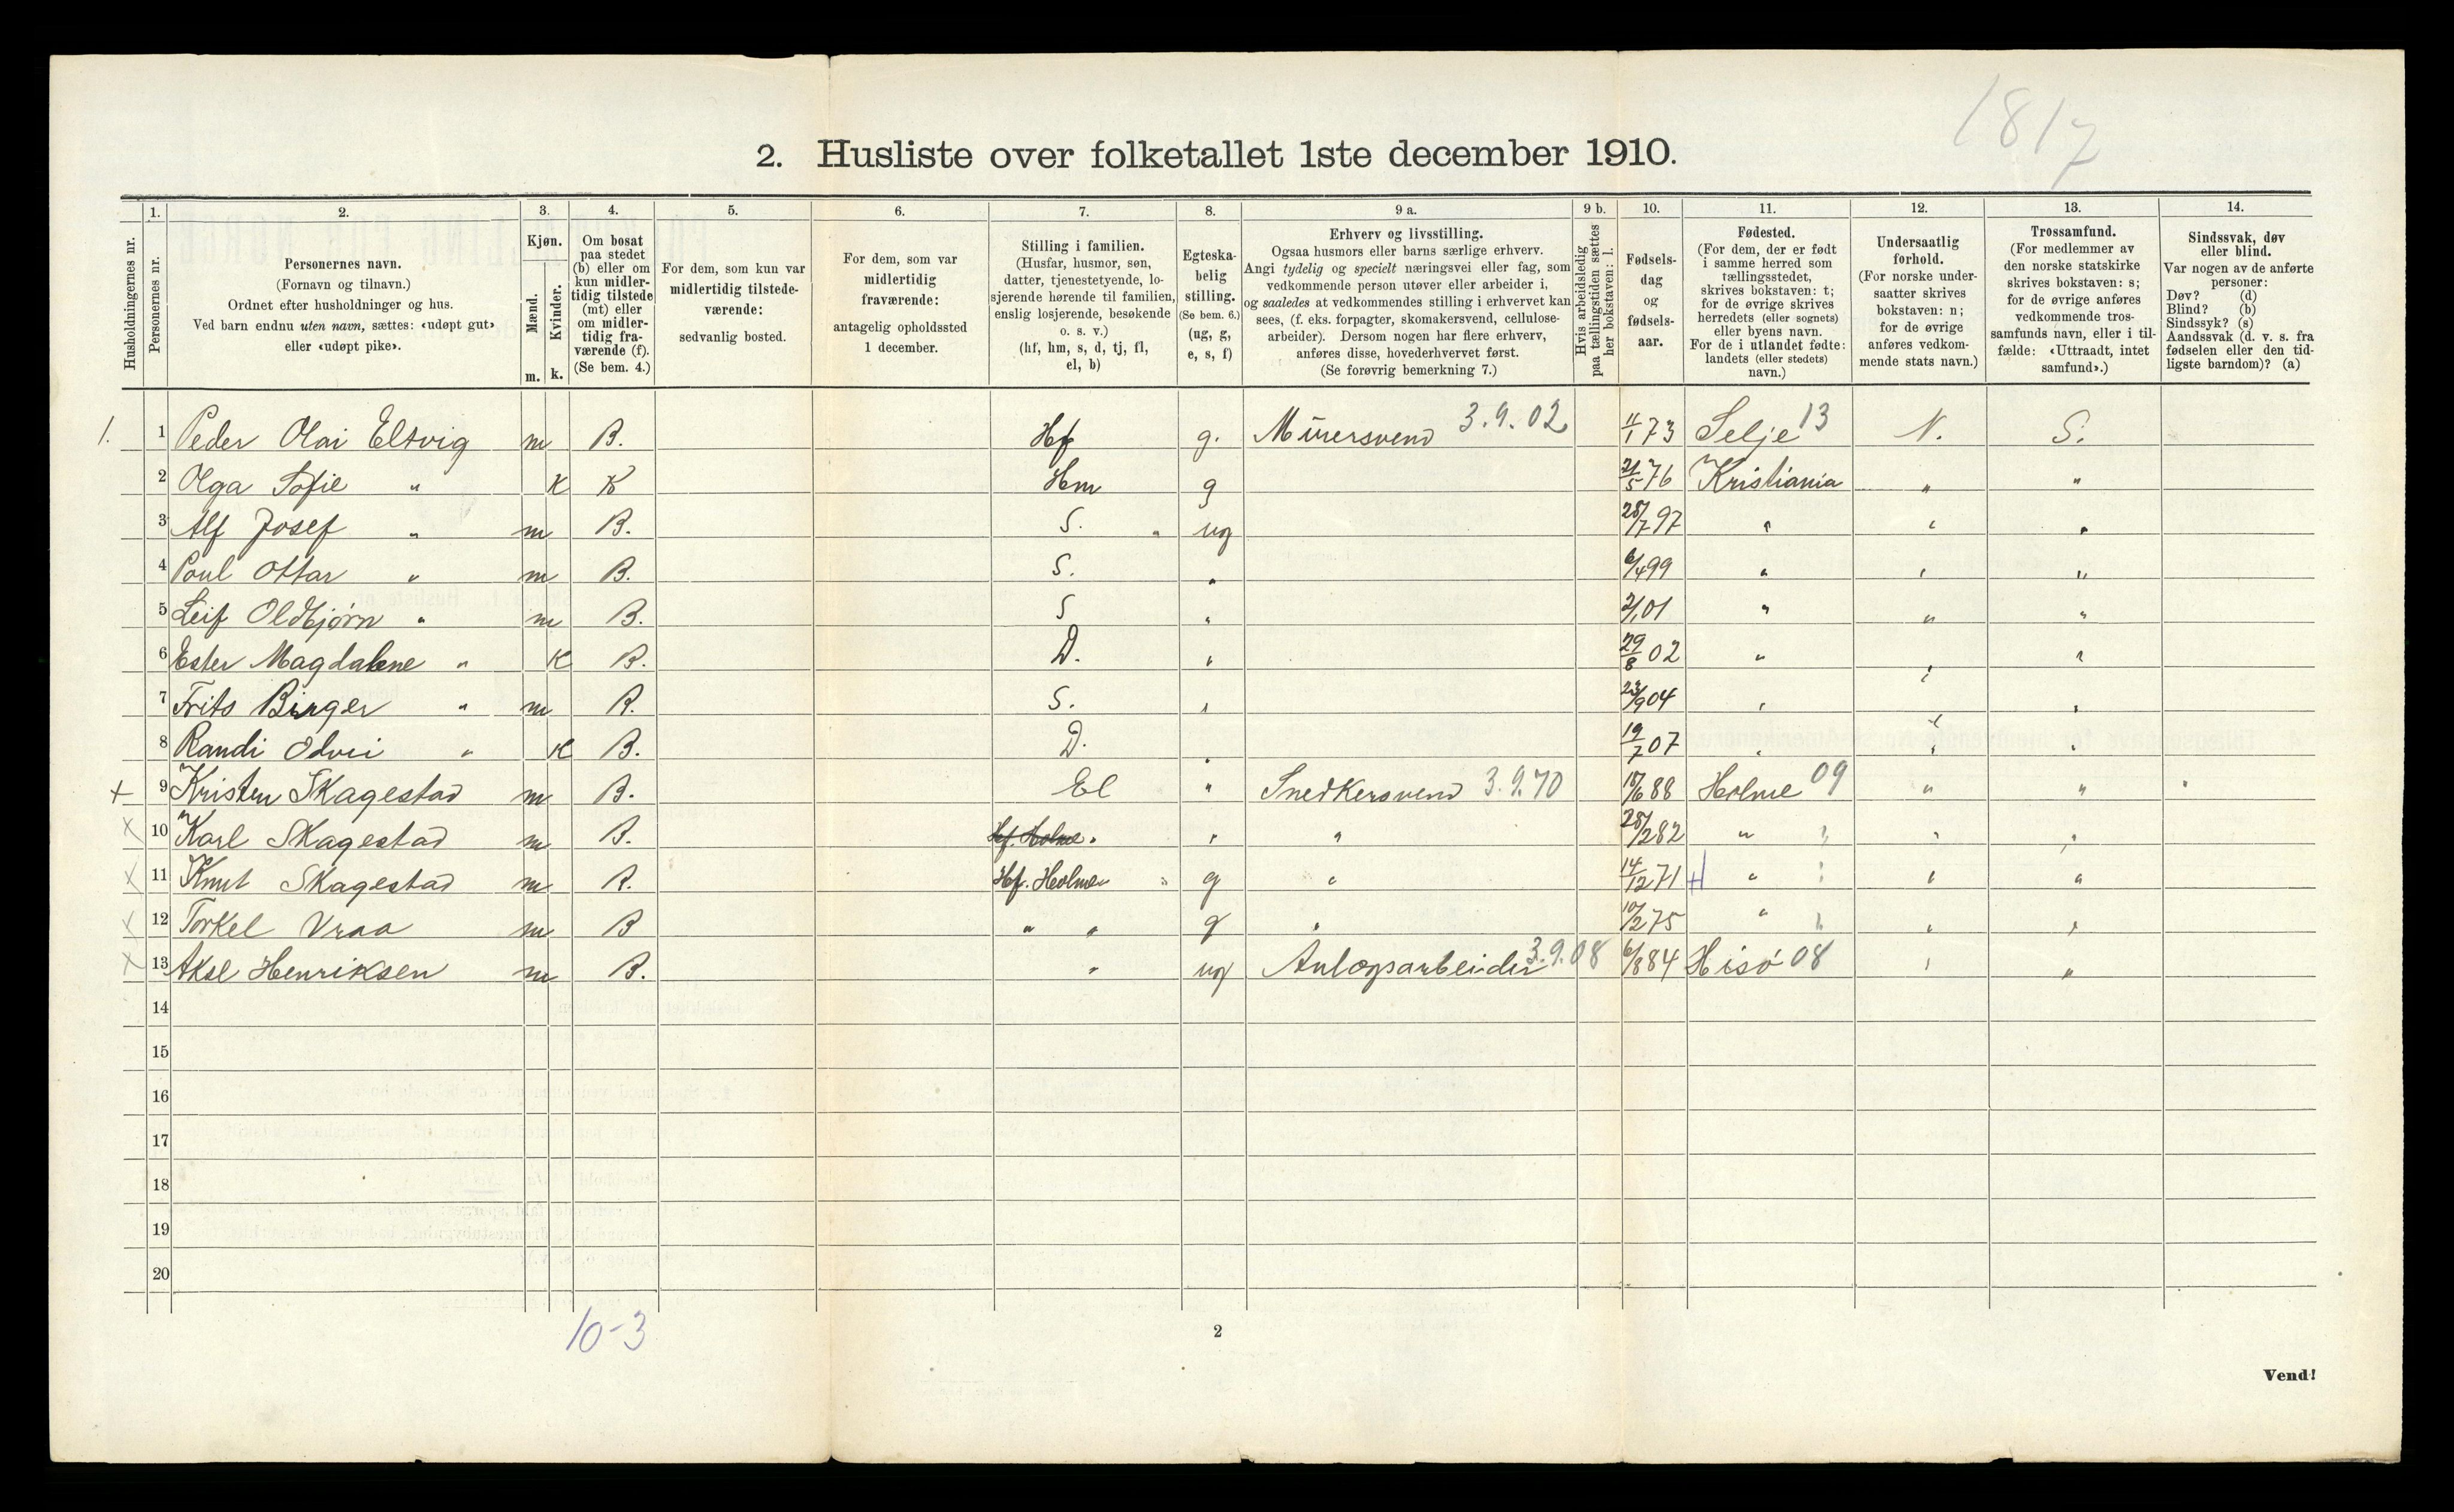 1817
2. Husliste over folketallet 1ste december 1910.
Husholdningernes nr.
1. Personernes nr.
2. Personernes navn.
(Fornavn og tilnavn.)
Ordnet efter husholdninger og hus.
Ved barn endnu uten navn, sættes: «udøpt gut»
eller «udøpt pike».
3. Kjøn.
Mænd. m.
Kvinder. k.
4. Om bosat
paa stedet
(b) eller om
kun midler-
tidig tilstede
(mt) eller
om midler-
tidig fra-
værende (f).
(Se bem. 4.)
5. For dem, som kun var
midlertidig tilstede-
værende:
sedvanlig bosted.
6. For dem, som var
midlertidig
fraværende:
antagelig opholdssted
1 december.
7. Stilling i familien.
(Husfar, husmor, søn,
datter, tjenestetyende, lo-
sjerende hørende til familien,
enslig losjerende, besøkende
o. s. v.)
(hf, hm, s, d, tj, fl,
el, b)
8. Egteska-
belig
stilling.
(Se bem. 6.)
(ug, g,
e, s, f)
9 a. Erhverv og livsstilling.
Ogsaa husmors eller barns særlige erhverv.
Angi tydelig og specielt næringsvei eller fag, som
vedkommende person utøver eller arbeider i,
og saaledes at vedkommendes stilling i erhvervet kan
sees, (f. eks. forpagter, skomakersvend, cellulose-
arbeider). Dersom nogen har flere erhverv,
anføres disse, hovederhvervet først.
(Se forøvrig bemerkning 7.)
9 b. Hvis arbeidsledig
paa tællingstiden sættes
her bokstaven: l.
10. Fødsels-
dag
og
fødsels-
aar.
11. Fødested.
(For dem, der er født
i samme herred som
tællingsstedet,
skrives bokstaven: t;
for de øvrige skrives
herredets (eller sognets)
eller byens navn.
For de i utlandet fødte:
landets (eller stedets)
navn.)
12. Undersaatlig
forhold.
(For norske under-
saatter skrives
bokstaven: n;
for de øvrige
anføres vedkom-
mende stats navn.)
13. Trossamfund.
(For medlemmer av
den norske statskirke
skrives bokstaven: s;
for de øvrige anføres
vedkommende tros-
samfunds navn, eller i til-
fælde: «Uttraadt, intet
samfund».)
14. Sindssvak, døv
eller blind.
Var nogen av de anførte
personer:
Døv? (d)
Blind? (b)
Sindssyk? (s)
Aandssvak (d. v. s. fra
fødselen eller den tid-
ligste barndom)? (a)
1. 1 Peder Olai Eltvig m B. Hf g. Murersvend 3.9.02 4/1 73 Selje 13 N. S.
2 Olga Sofie " K K Hm g 21/5 76 Kristiania " "
3 Alf Josef " m B. S. " ug 28/7 97 " " "
4 Poul Ottar " m B. S. " 6/4 99 " " "
5 Leif Oldbjørn " m B. S " 2/1 01 " " "
6 Ester Magdalene " K B. D. " 29/8 02 " " "
7 Frits Birger " m B. S. " 23/9 04 " " "
8 Randi Odvei " K B. D. " 19/7 07 " " "
+ 9 Kristen Skagestad m B. El " Snedkersvend 3.9.70 18/6 88 Holme 09 " "
x 10 Karl Skagestad m B. Hf. Holme " " " 28/2 82 " " " "
x 11 Knut Skagestad m B. Hf. Holme " g " 14/12 71 H " " " "
x 12 Torkel Vraa m B " " g " 10/2 75 " " " "
x 13 Aksel Henriksen m B. " ug Anlægsarbeider 3.9.08 6/8 84 Hisø 08 " "
14
15
16
17
18
19
20
10-3
2
Vend!